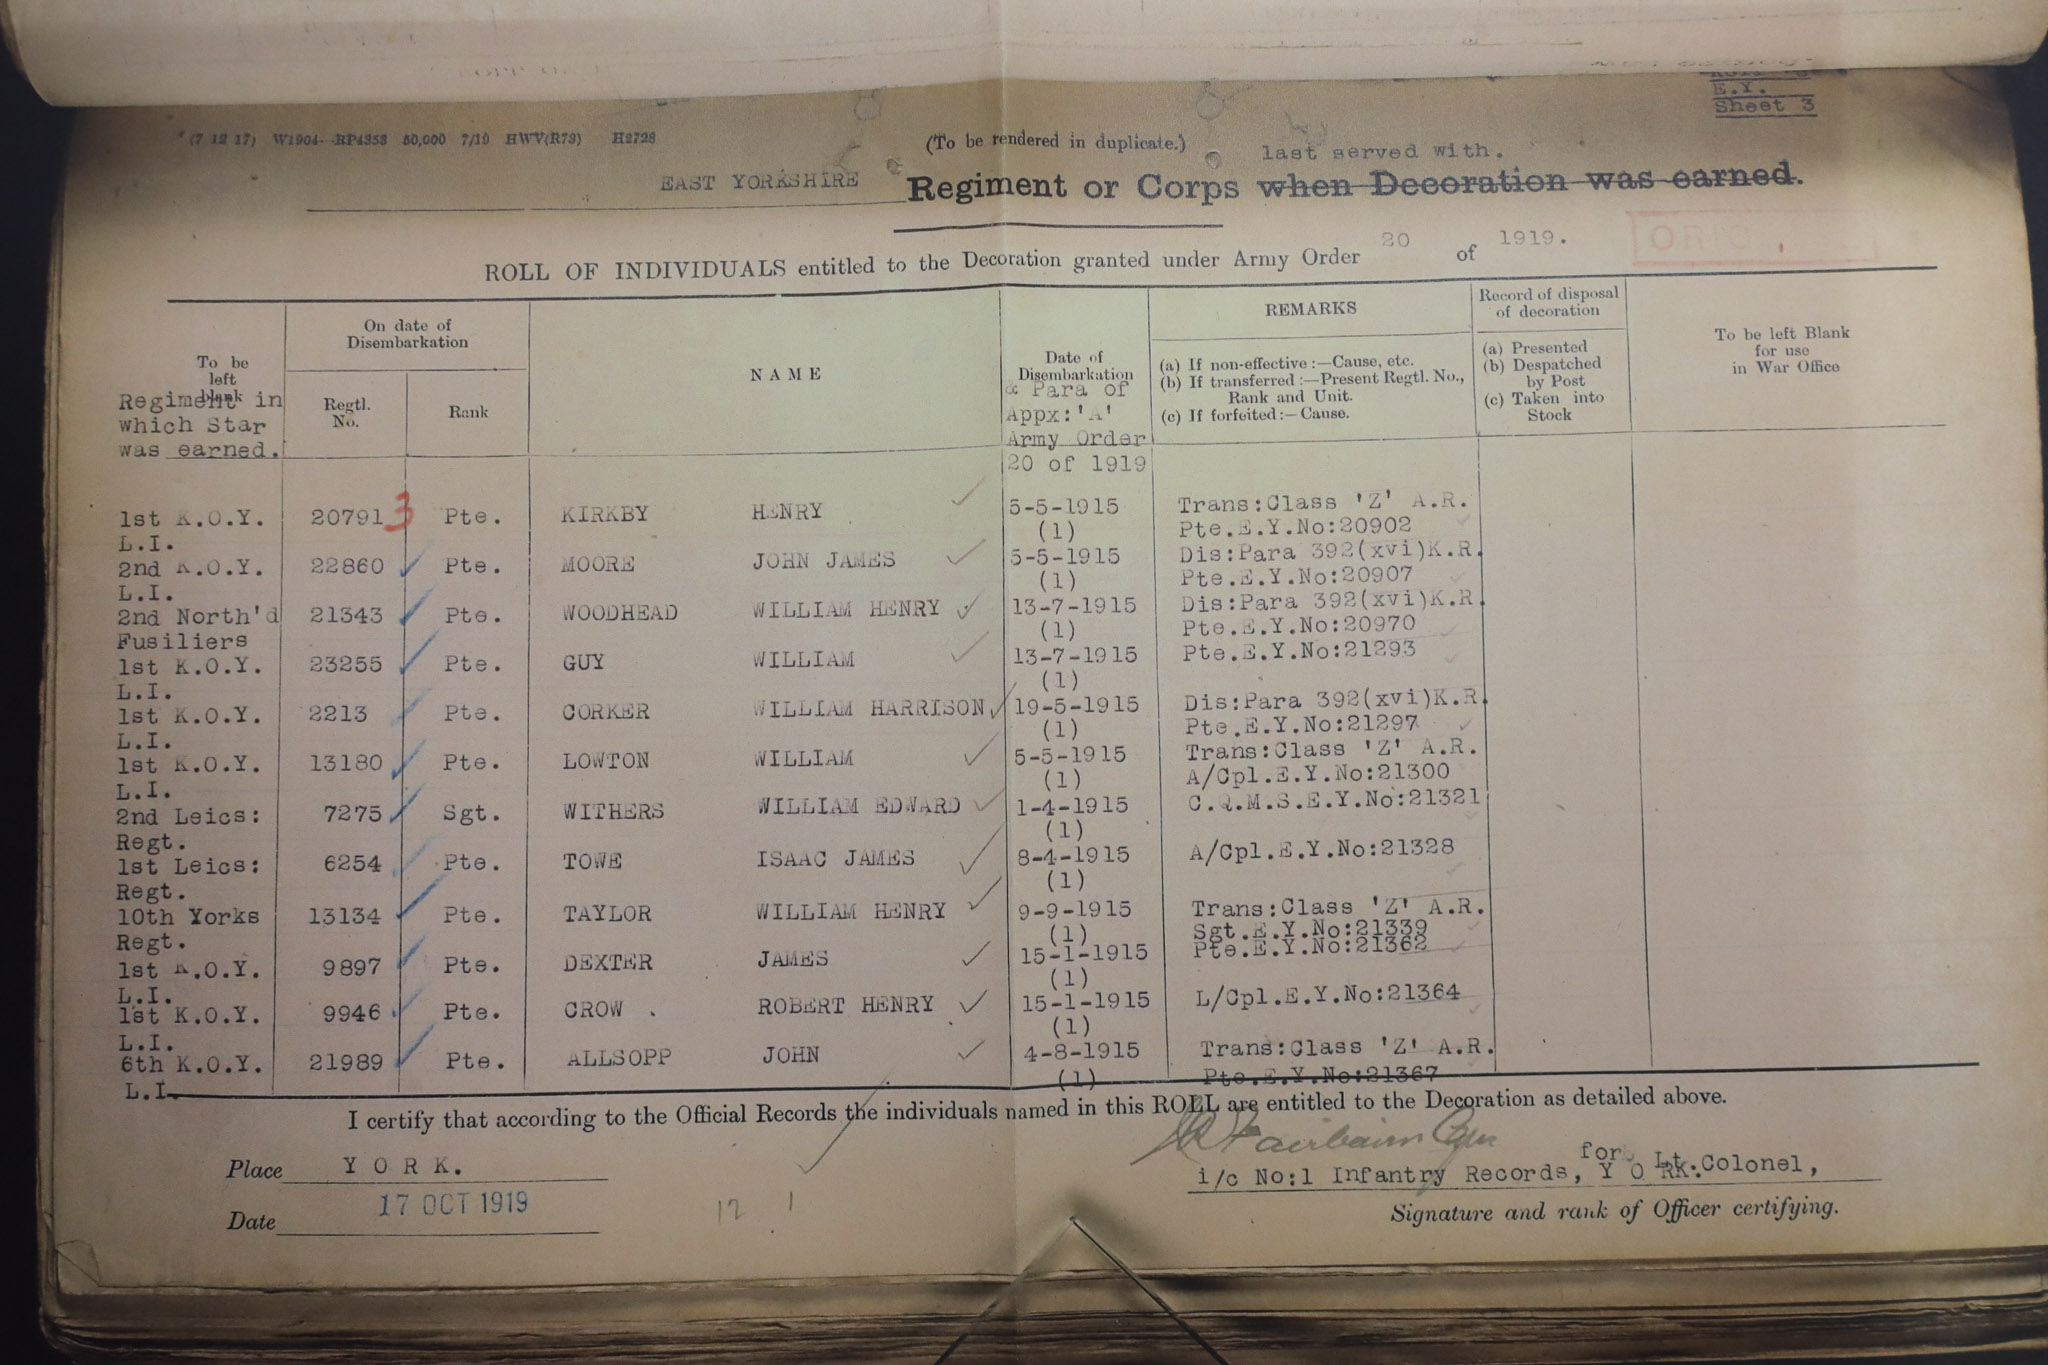 E.Y.
Sheet 3
(7 12 17) W1904- RP4353 50,000 7/19 HWV(R73) H2728
(To be rendered in duplicate.)
last served with.
EAST YORKSHIRE Regiment or Corps when Decoration was earned.
ROLL OF INDIVIDUALS entitled to the Decoration granted under Army Order 20 of 1919.
To be left blank
Regiment in which Star was earned.
On date of Disembarkation
Regtl. No.
Rank
NAME
Date of Disembarkation
& Para of Appx:'A' Army Order 20 of 1919
REMARKS
(a) If non-effective :—Cause, etc.
(b) If transferred :—Present Regtl. No., Rank and Unit.
(c) If forfeited :—Cause.
Record of disposal of decoration
(a) Presented
(b) Despatched by Post
(c) Taken into Stock
To be left Blank for use in War Office
1st K.O.Y. 20791 3 Pte. KIRKBY HENRY 5-5-1915 Trans:Class 'Z' A.R.
L.I. (1) Pte.E.Y.No:20902
2nd K.O.Y. 22860 Pte. MOORE JOHN JAMES 5-5-1915 Dis:Para 392(xvi)K.R.
L.I. (1) Pte.E.Y.No:20907
2nd North'd 21343 Pte. WOODHEAD WILLIAM HENRY 13-7-1915 Dis:Para 392(xvi)K.R.
Fusiliers (1) Pte.E.Y.No:20970
1st K.O.Y. 23255 Pte. GUY WILLIAM 13-7-1915 Pte.E.Y.No:21293
L.I. (1)
1st K.O.Y. 2213 Pte. CORKER WILLIAM HARRISON 19-5-1915 Dis:Para 392(xvi)K.R.
L.I. (1) Pte.E.Y.No:21297
1st K.O.Y. 13180 Pte. LOWTON WILLIAM 5-5-1915 Trans:Class 'Z' A.R.
L.I. (1) A/Cpl.E.Y.No:21300
2nd Leics: 7275 Sgt. WITHERS WILLIAM EDWARD 1-4-1915 C.Q.M.S.E.Y.No:21321
Regt. (1)
1st Leics: 6254 Pte. TOWE ISAAC JAMES 8-4-1915 A/Cpl.E.Y.No:21328
Regt. (1)
10th Yorks 13134 Pte. TAYLOR WILLIAM HENRY 9-9-1915 Trans:Class 'Z' A.R.
Regt. (1) Sgt.E.Y.No:21339
1st K.O.Y. 9897 Pte. DEXTER JAMES 15-1-1915 Pte.E.Y.No:21362
L.I. (1)
1st K.O.Y. 9946 Pte. CROW ROBERT HENRY 15-1-1915 L/Cpl.E.Y.No:21364
L.I. (1)
6th K.O.Y. 21989 Pte. ALLSOPP JOHN 4-8-1915 Trans:Class 'Z' A.R.
L.I. (1) Pte.E.Y.No:21367
I certify that according to the Official Records the individuals named in this ROLL are entitled to the Decoration as detailed above.
Fairbairn
for Lt.Colonel,
Place YORK. i/c No:1 Infantry Records, YORK.
Date 17 OCT 1919
12 1
Signature and rank of Officer certifying.